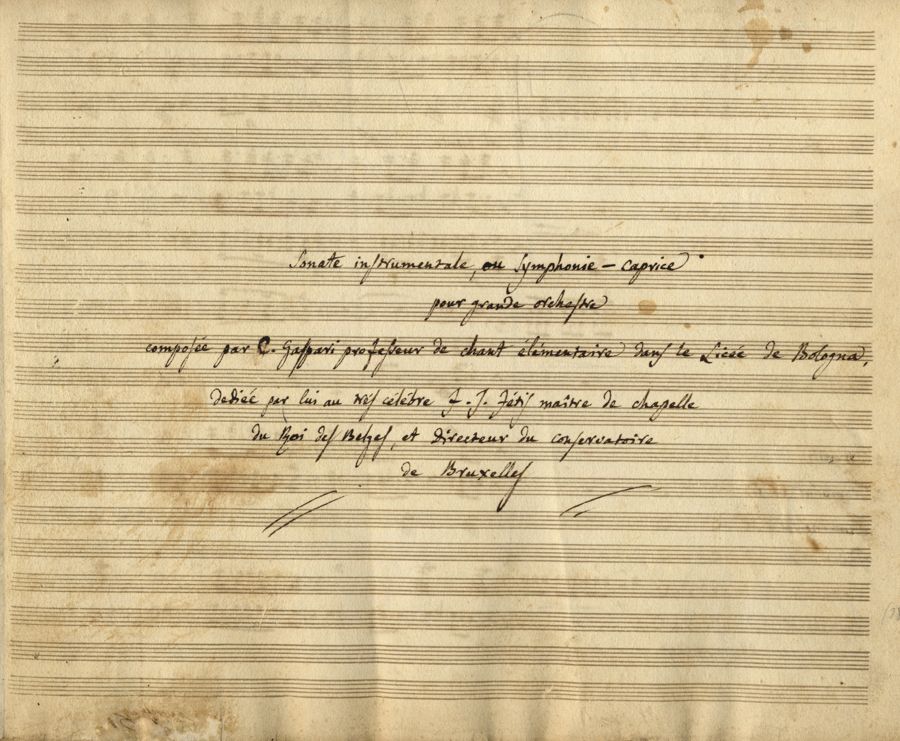 Sonate instrumentale, ou Symphonie - Caprice
pour grande orchestre
composée par C. Gaspari professeur de chant élémentaire dans le Licée de Bologna,
dediée par lui au très célèbre F. J. Fétis maître de chapelle
du Roi des Belges, et directeur du conservatoire
de Bruxelles